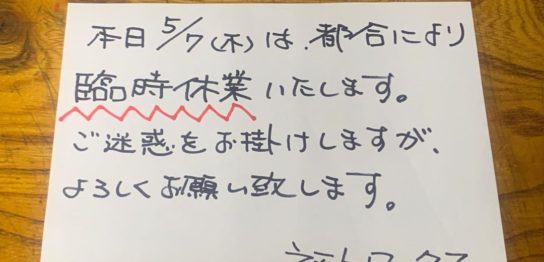 本日5/7(木)は、都合により
臨時休業いたします。
ご迷惑をお掛けしますが、
よろしくお願い致します。